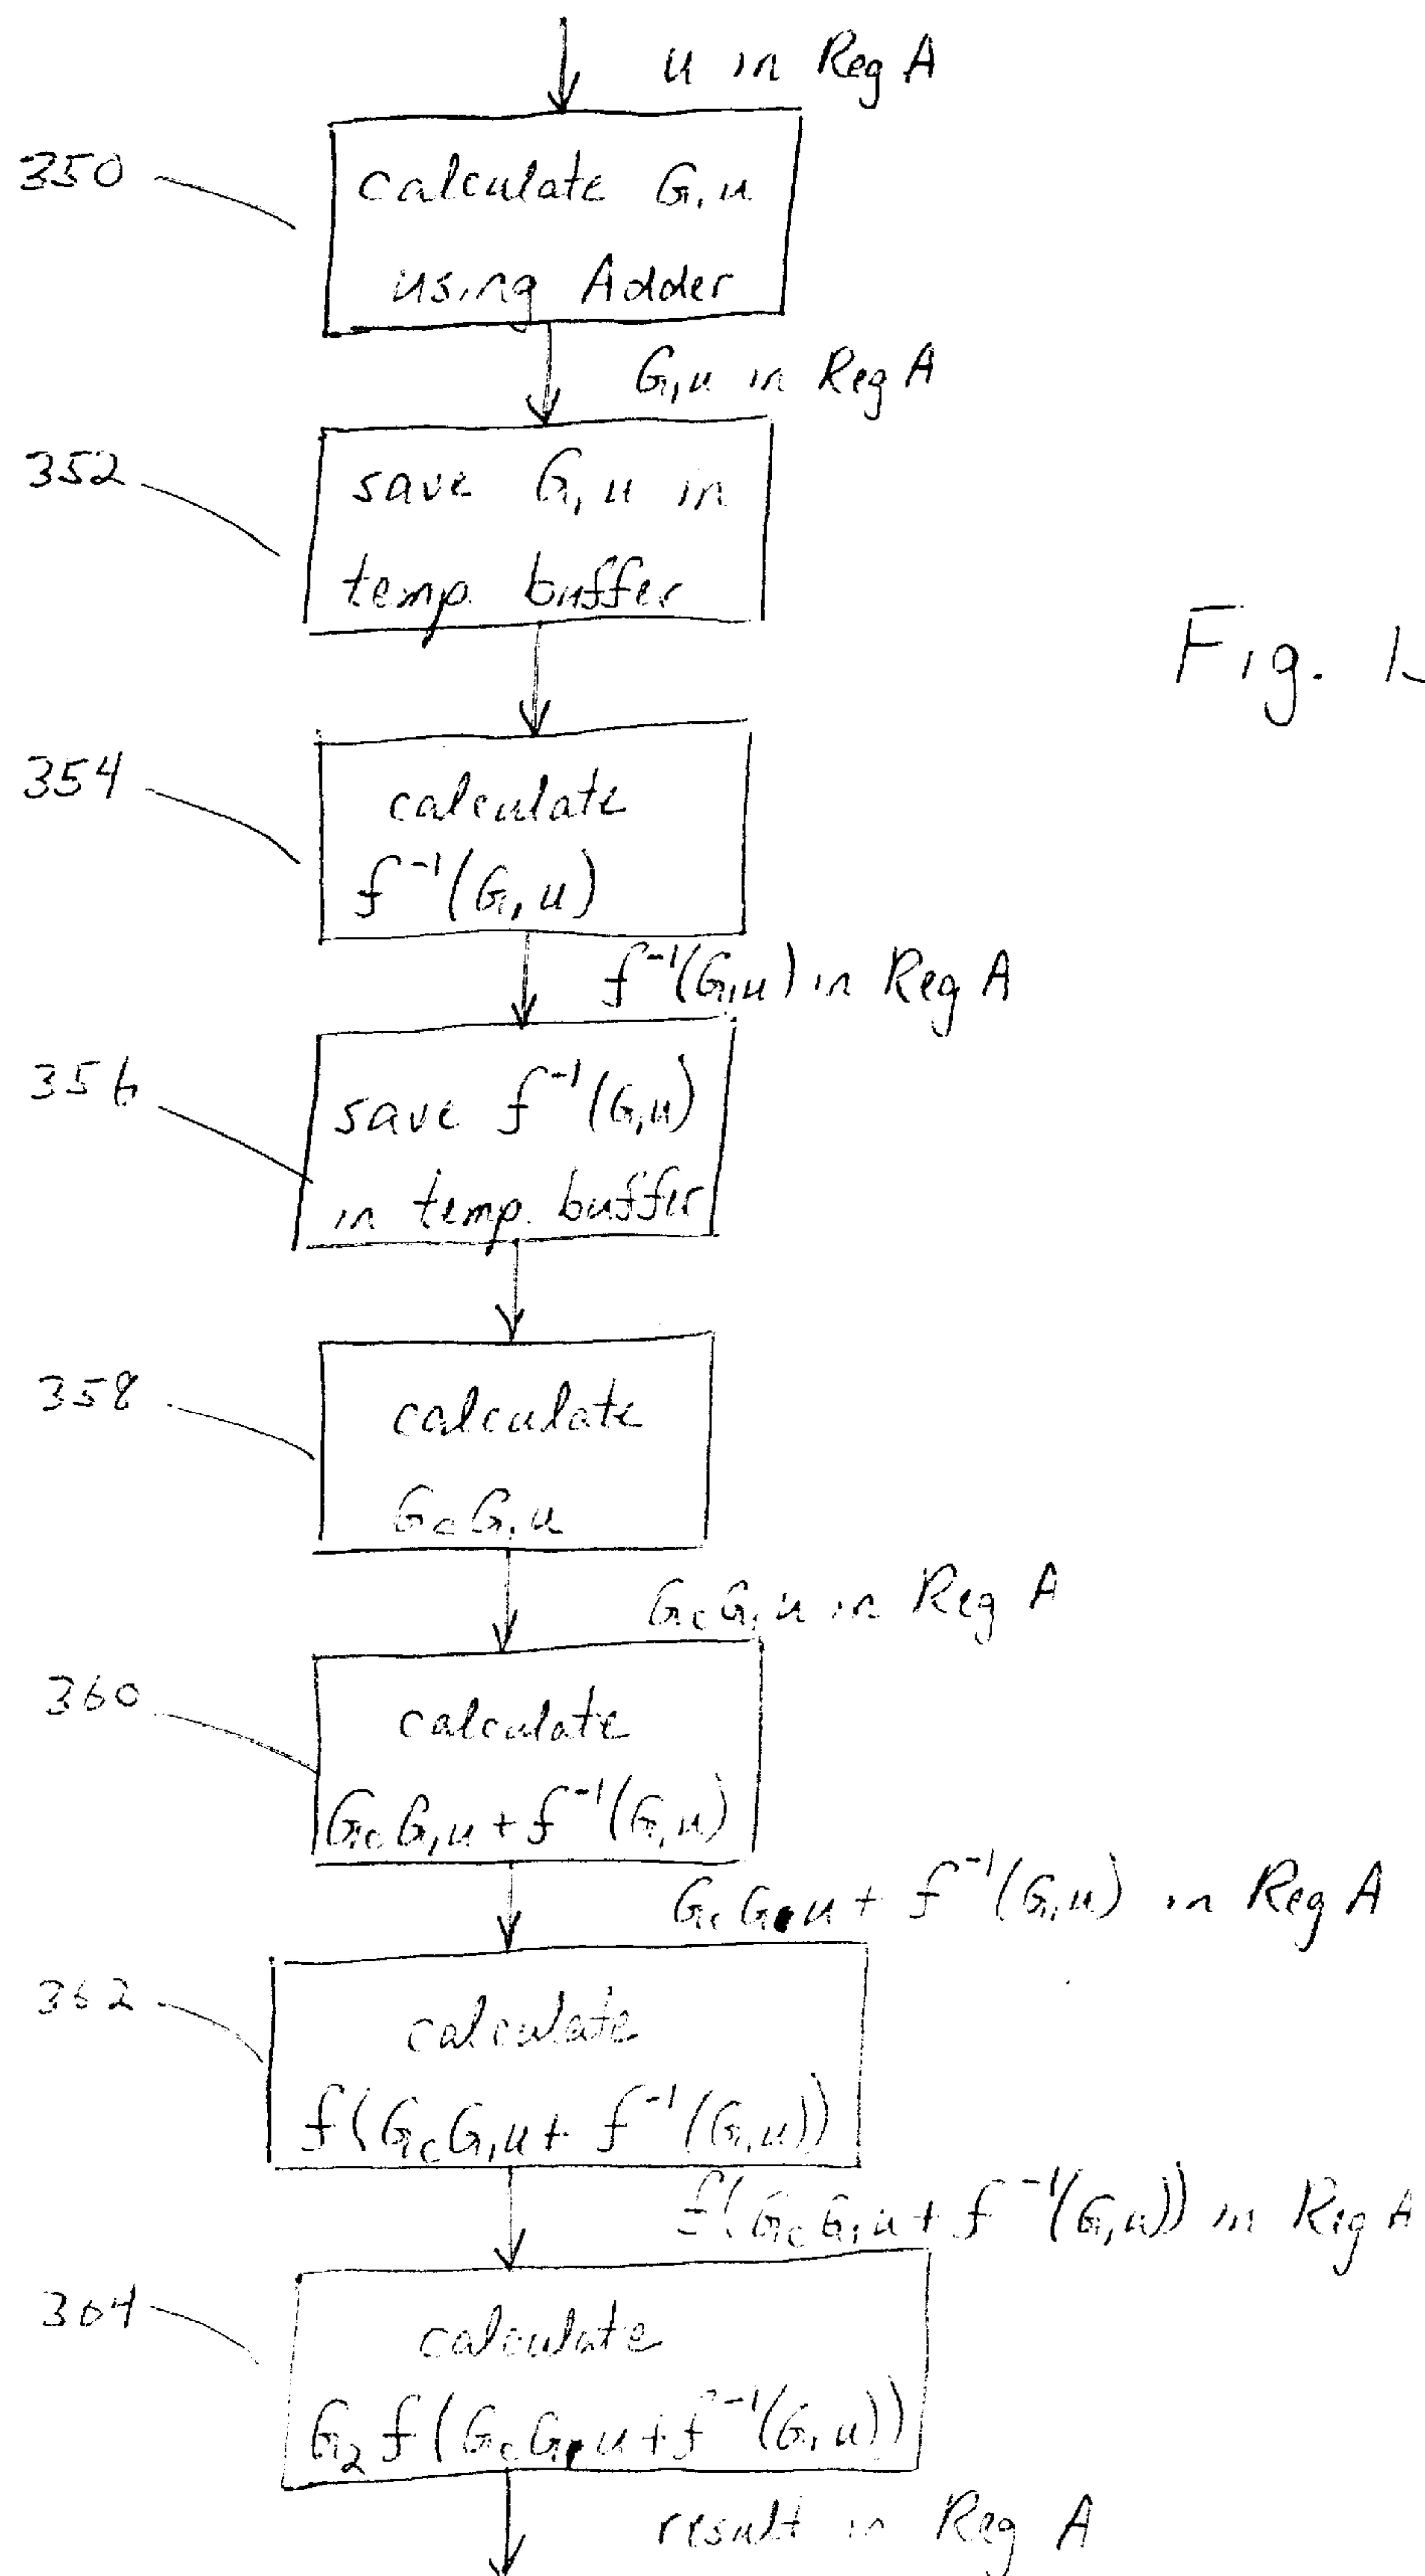 u in Reg A
350
calculate G₁u
using Adder
G₁u in Reg A
352
save G₁u in
temp. buffer
Fig.
354
calculate
f⁻¹(G₁u)
f⁻¹(G₁u) in Reg A
356
save f⁻¹(G₁u)
in temp. buffer
358
calculate
GcG₁u
GcG₁u in Reg A
360
calculate
GcG₁u + f⁻¹(G₁u)
GcG₁u + f⁻¹(G₁u) in Reg A
362
calculate
f(GcG₁u + f⁻¹(G₁u))
f(GcG₁u + f⁻¹(G₁u)) in Reg A
364
calculate
G₂f(GcG₁u + f⁻¹(G₁u))
result in Reg A